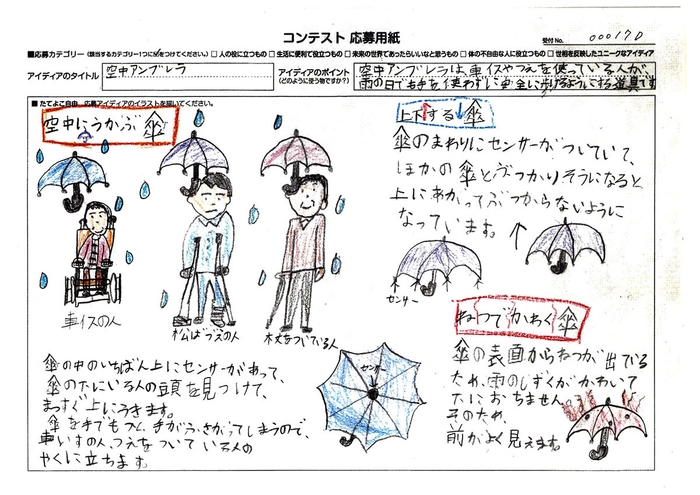 コンテスト 応募用紙
受付No. 00017D
■応募カテゴリー(該当するカテゴリー1つに☒をつけてください。) □人の役に立つもの □生活に便利で役立つもの □未来の世界であったらいいなと思うもの □体の不自由な人に役立つもの □世相を反映したユニークなアイディア
アイディアのタイトル
空中アンブレラ
アイディアのポイント
(どのように使う物ですか?)
空中アンブレラは、車イスやつえを使っている人が
雨の日でも手を使わずに安全に歩けるようにする道具です
■たてよこ自由。応募アイディアのイラストを描いてください。
空中にうかぶ傘
車イスの人
松ばづえの人
杖をついている人
傘の中のいちばん上にセンサーがあって、
傘の下にいる人の頭を見つけて、
まっすぐ上にうきます。
傘を手でもつと、手がふさがってしまうので、
車いすの人、つえをついている人の
やくに立ちます。
センサー
上下する傘
傘のまわりにセンサーがついていて、
ほかの傘とぶつかりそうになると
上にあがってぶつからないように
なっています。
センサー
ねつでかわく傘
傘の表面からねつが出ている
ため、雨のしずくがかわいて
下におちません。
そのため、
前がよく見えます。